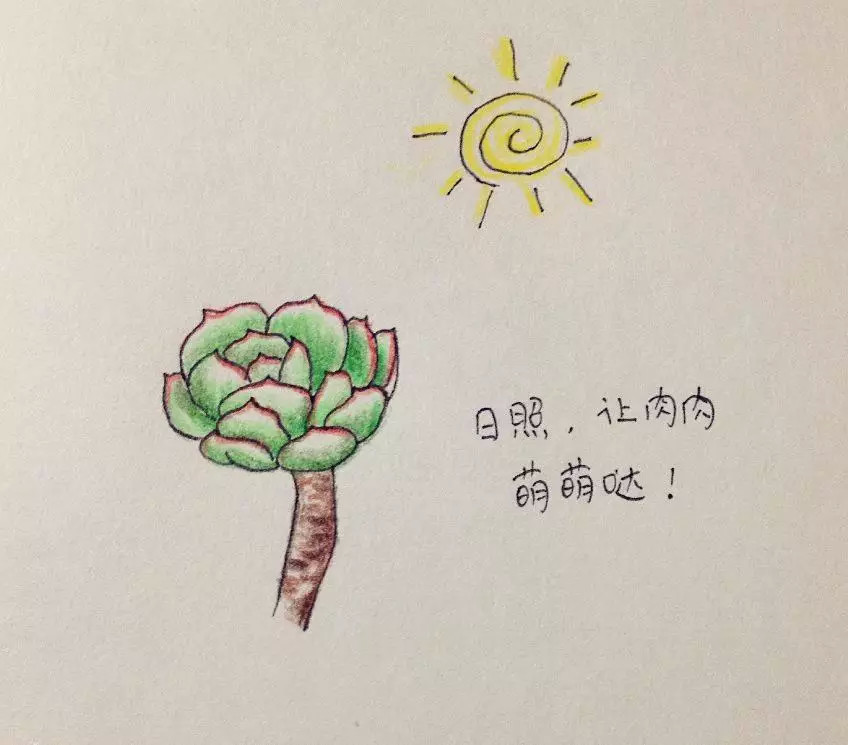 日照，让肉肉
萌萌哒！